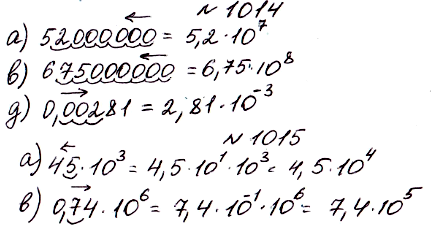 № 1014
а) 52000000 = 5,2·10⁷
в) 675000000 = 6,75·10⁸
д) 0,00281 = 2,81·10⁻³
№ 1015
а) 45·10³ = 4,5·10¹·10³ = 4,5·10⁴
в) 0,74·10⁶ = 7,4·10⁻¹·10⁶ = 7,4·10⁵